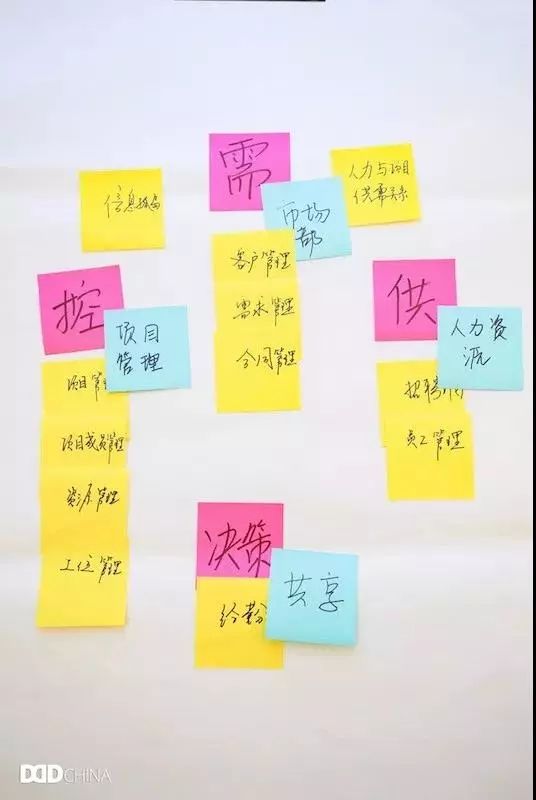 需
市场
部
人力与项目
供需关系
信息孤岛
客户管理
需求管理
合同管理
控
项目
管理
项目管
项目成员管理
资源管理
工位管理
供
人力资
源
招聘
员工管理
决策
共享
DDD CHINA